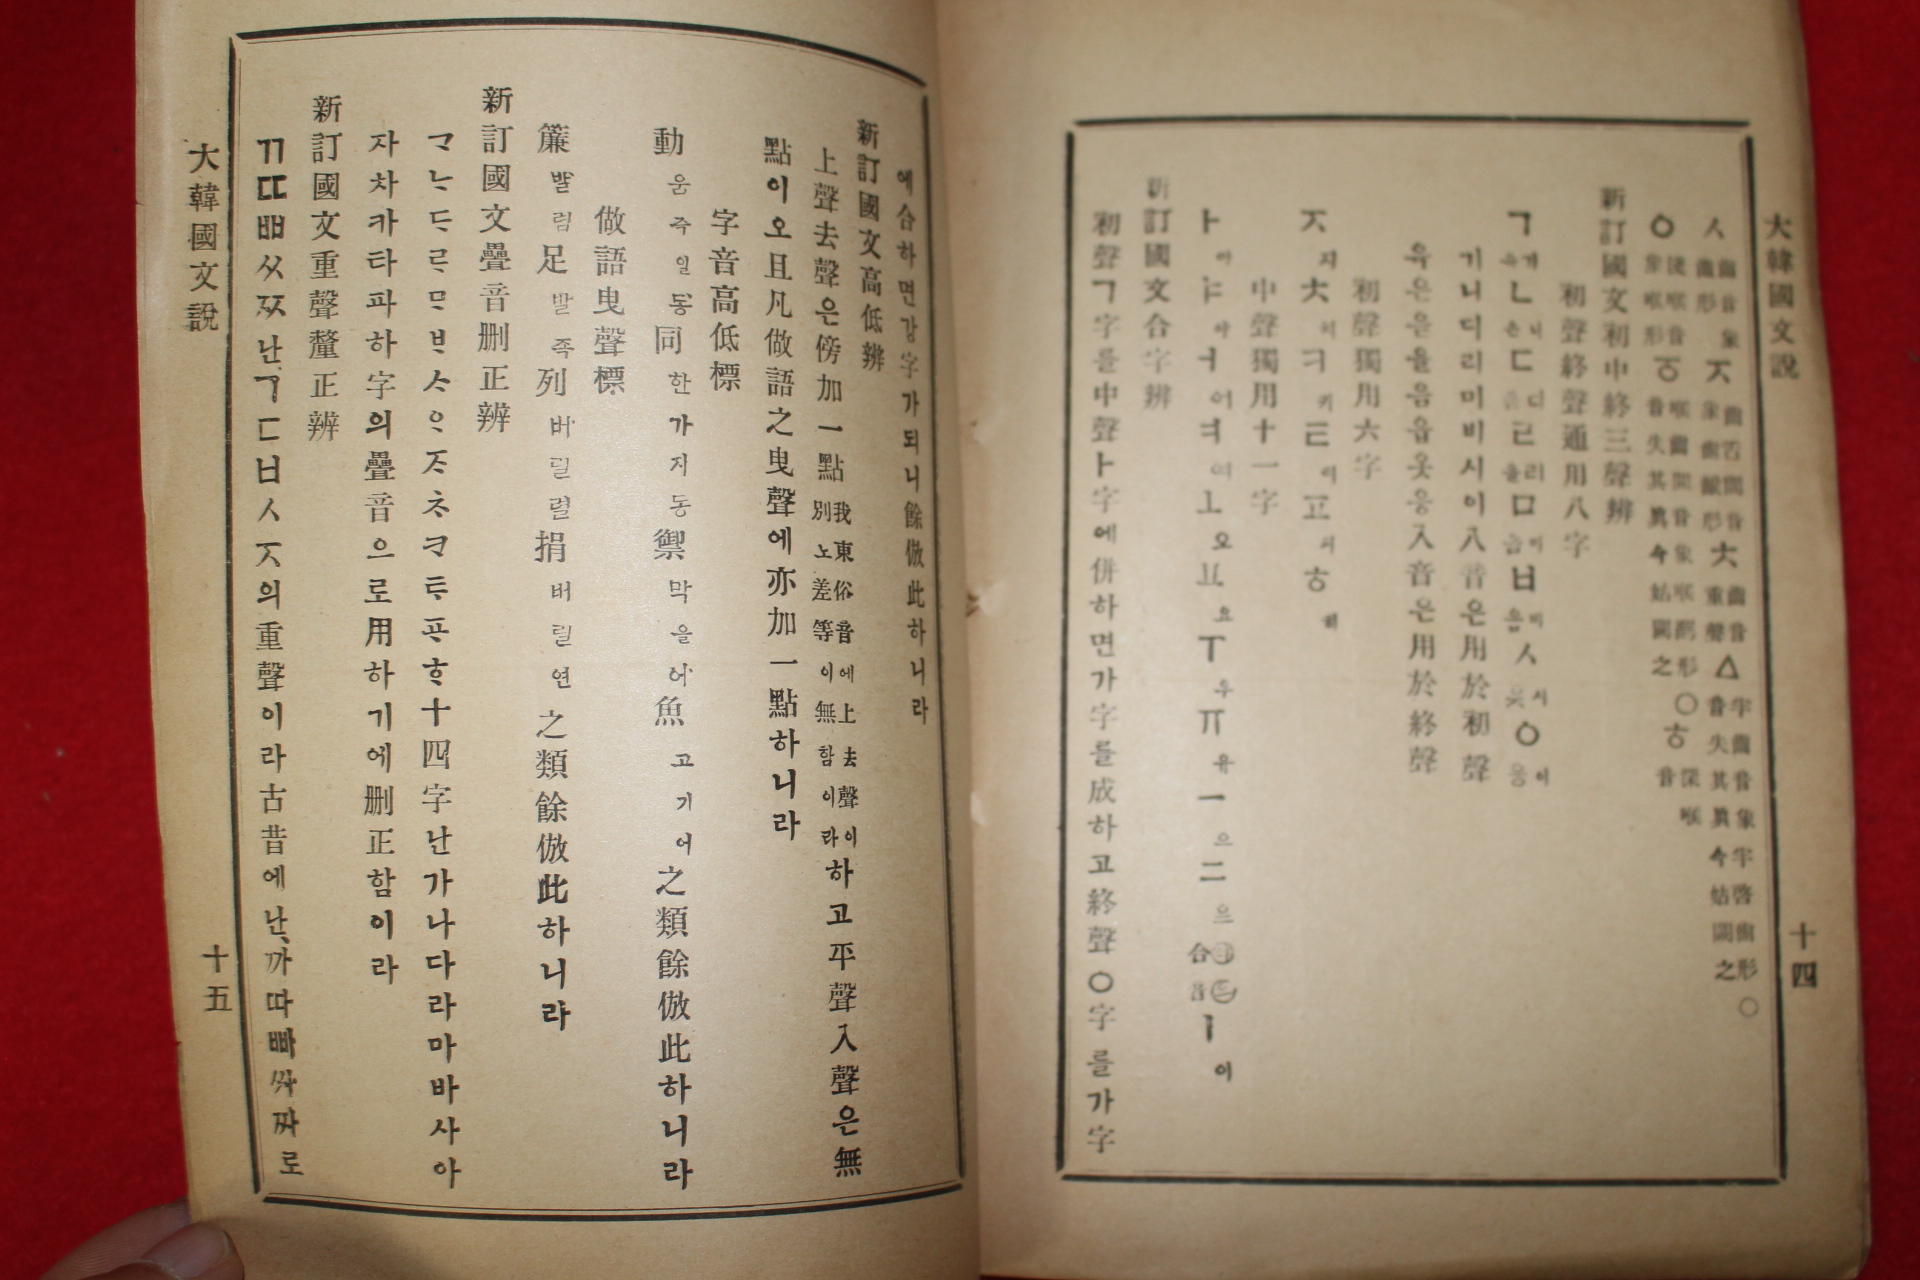 大韓國文說 十四
ㅅ 齒音象齒形 ㅈ 齒舌間音象齒齦形 ㅊ 齒音重聲 ㅿ 半齒音象半啓齒形 ○ 音失其眞今姑闕之
ㅇ 淺喉音象喉形 ㆁ 喉齒間音象喉齶形 ○ 音失其眞今姑闕之 ㅎ 深喉音
新訂國文初中終三聲辨
初聲終聲通用八字
ㄱ 기윽 ㄴ 니은 ㄷ 디 ㄹ 리을 ㅁ 미음 ㅂ 비읍 ㅅ 시 ㅇ 이응
기니디리미비시이八音은用於初聲
윽은 을음읍 응八音은用於終聲
初聲獨用六字
ㅈ 지 ㅊ 치 ㅋ 키 ㅌ 티 ㅍ 피 ㅎ 히
中聲獨用十一字
ㅏ 아 ㅑ 야 ㅓ 어 ㅕ 여 ㅗ 오 ㅛ 요 ㅜ 우 ㅠ 유 ㅡ 으 合音 ㅣ 이
新訂國文合字辨
初聲ㄱ字를中聲ㅏ字에併하면가字를成하고終聲ㅇ字를가字
에合하면강字가되니餘倣此하니라
新訂國文高低辨
上聲去聲은傍加一點 我東俗音에上去聲이別노差等이無함이라 하고平聲入聲은無
點이오且凡做語之曳聲에亦加一點하니라
字音高低標
動 움즉일동 同 한가지동 禦 막을어 魚 고기어 之類餘倣此하니라
做語曳聲標
簾 발렴 足 발족 列 버릴렬 捐 버릴연 之類餘倣此하니라
新訂國文疊音刪正辨
十四字난가나다라마바사아
자차카타파하字의疊音으로用하기에刪正함이라
新訂國文重聲釐正辨
ㄲㄸㅃㅆㅉ난ㄱㄷㅂㅅㅈ의重聲이라古昔에난까따빠싸짜로
大韓國文說 十五